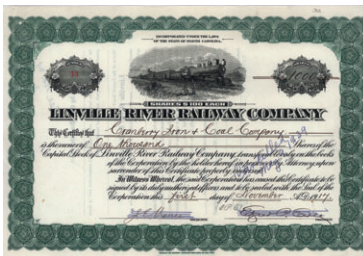 INCORPORATED UNDER THE LAWS
OF THE STATE OF NORTH CAROLINA.
1000
SHARES $100 EACH
LINVILLE RIVER RAILWAY COMPANY
This Certifies that Cranberry Iron & Coal Company
is the owner of One thousand Shares of the
Capital Stock of Linville River Railway Company, transferable only on the books
of the Corporation by the holder hereof in person or by Attorney upon
surrender of this Certificate properly endorsed.
In Witness Whereof, the said Corporation has caused this Certificate to be
signed by its duly authorized officers and to be sealed with the Seal of the
Corporation this first day of November A.D. 1917